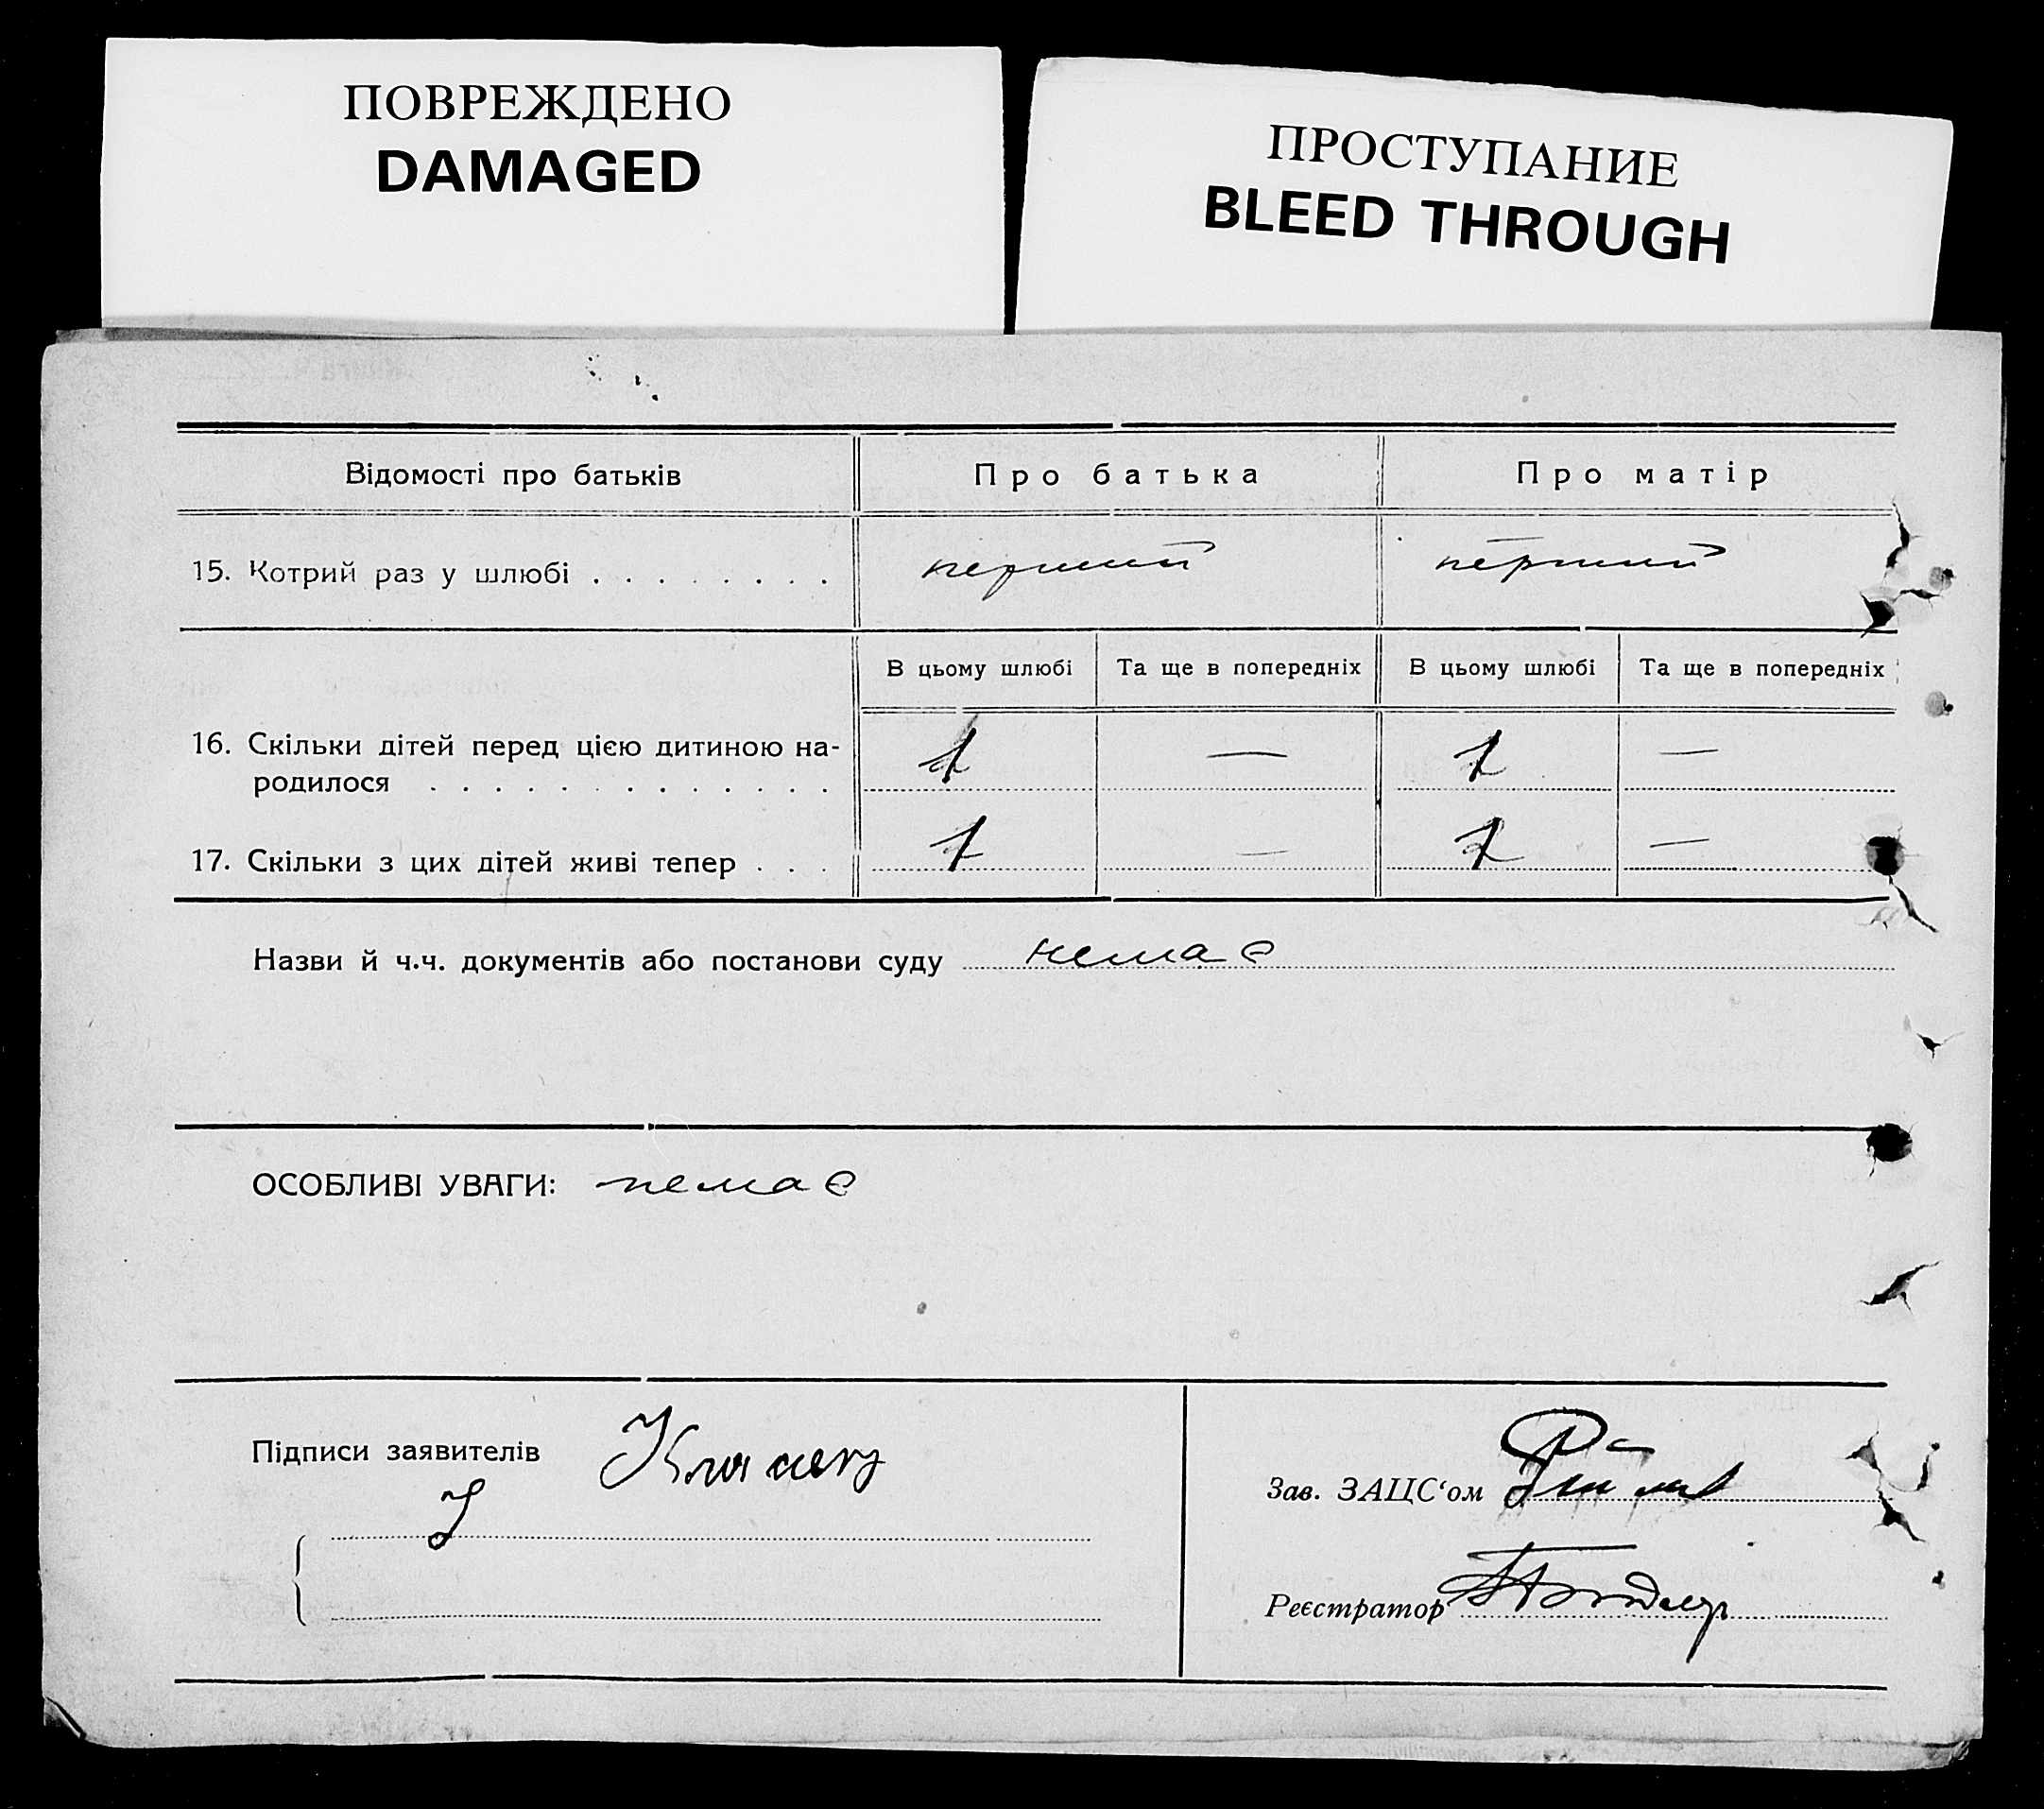 ПОВРЕЖДЕНО
DAMAGED
ПРОСТУПАНИЕ
BLEED THROUGH
Відомості про батьків Про батька Про матір
15. Котрий раз у шлюбі . . . . . . . . перший перший
В цьому шлюбі Та ще в попередніх В цьому шлюбі Та ще в попередніх
16. Скільки дітей перед цією дитиною на-
родилося . . . . . . . . . . . . . 1 — 1 —
17. Скільки з цих дітей живі тепер . . . 1 — 1 —
Назви й ч.ч. документів або постанови суду немає
ОСОБЛИВІ УВАГИ: немає
Підписи заявителів
Зав. ЗАЦС‘ом
Реєстратор